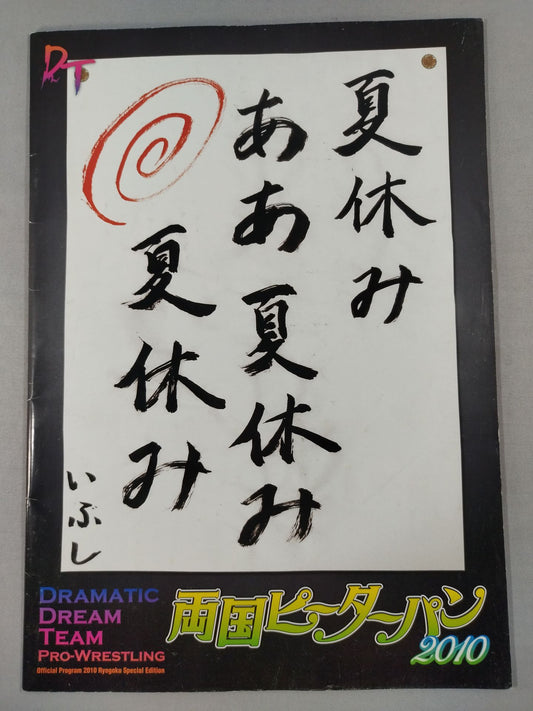 DDT
夏休み
ああ夏休み
夏休み
いふし
DRAMATIC
DREAM
TEAM
PRO-WRESTLING
Official Program 2010 Ryogoku Special Edition
両国ピーターパン
2010